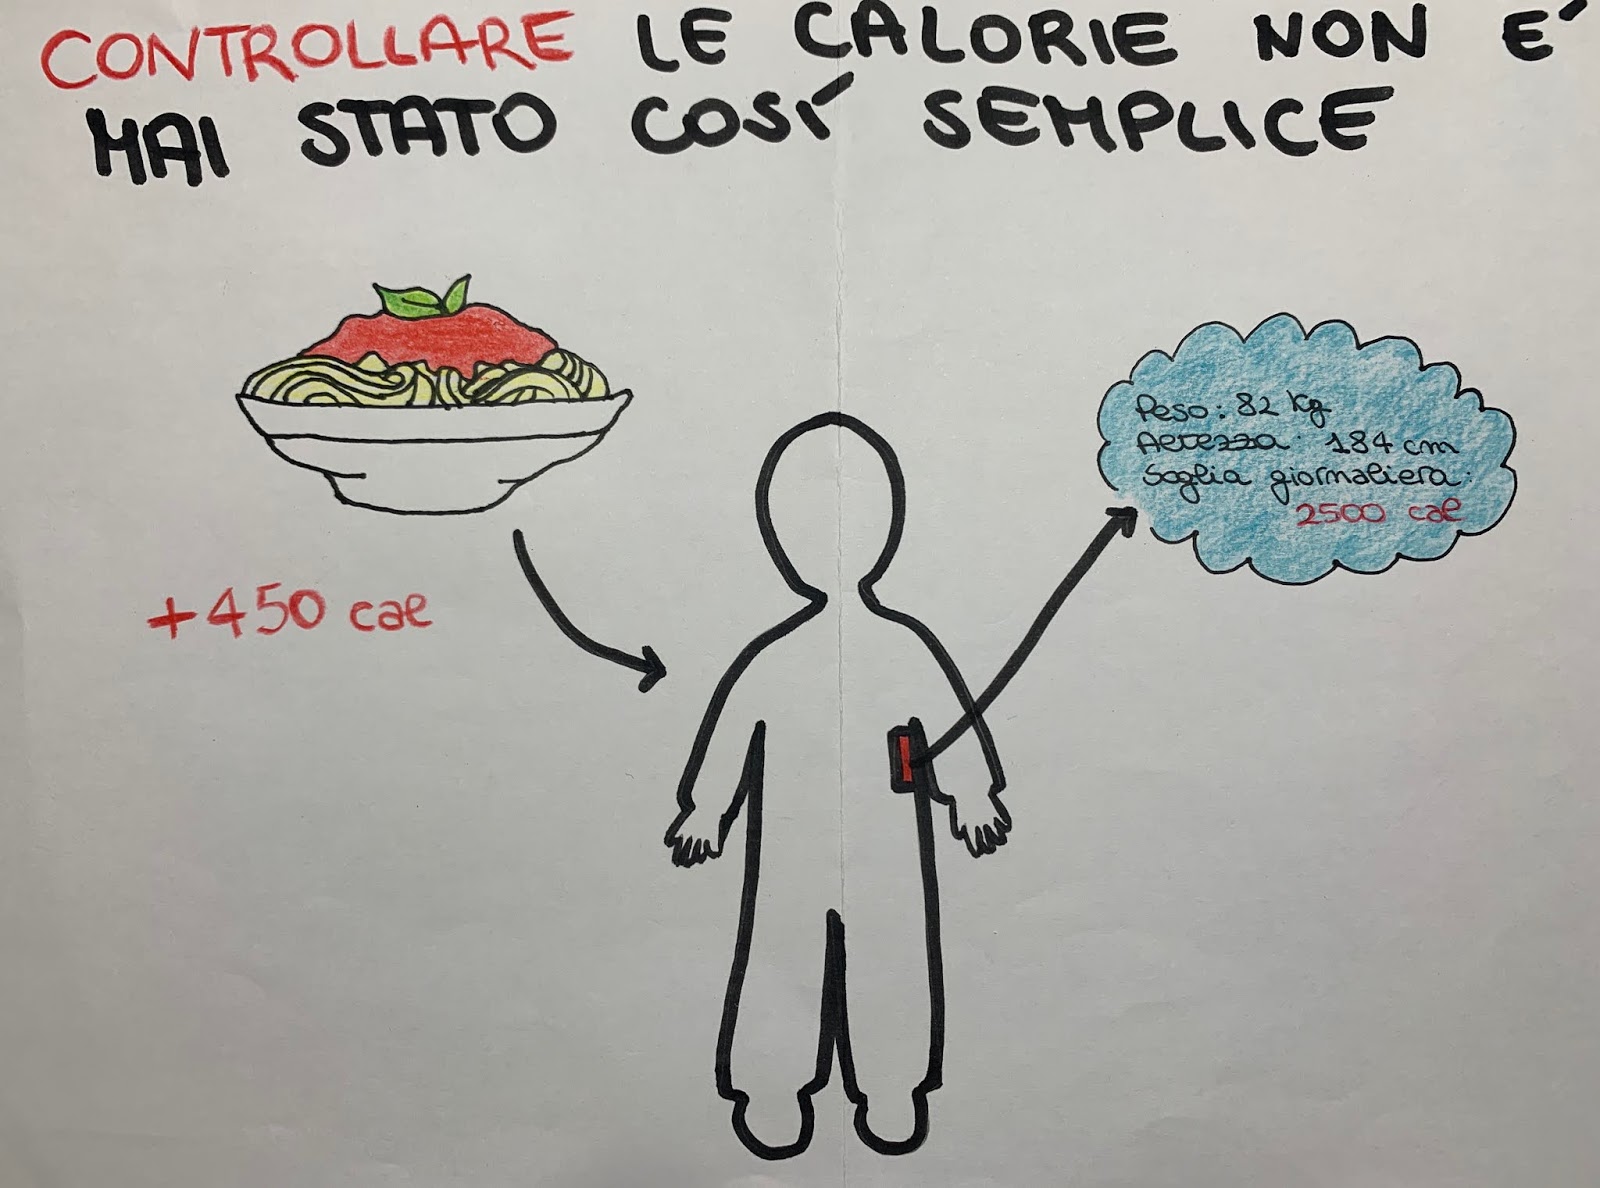 CONTROLLARE LE CALORIE NON E'
MAI STATO COSÍ SEMPLICE
Peso: 82 Kg
Altezza: 184 cm
Soglia giornaliera:
2500 cal
+450 cal